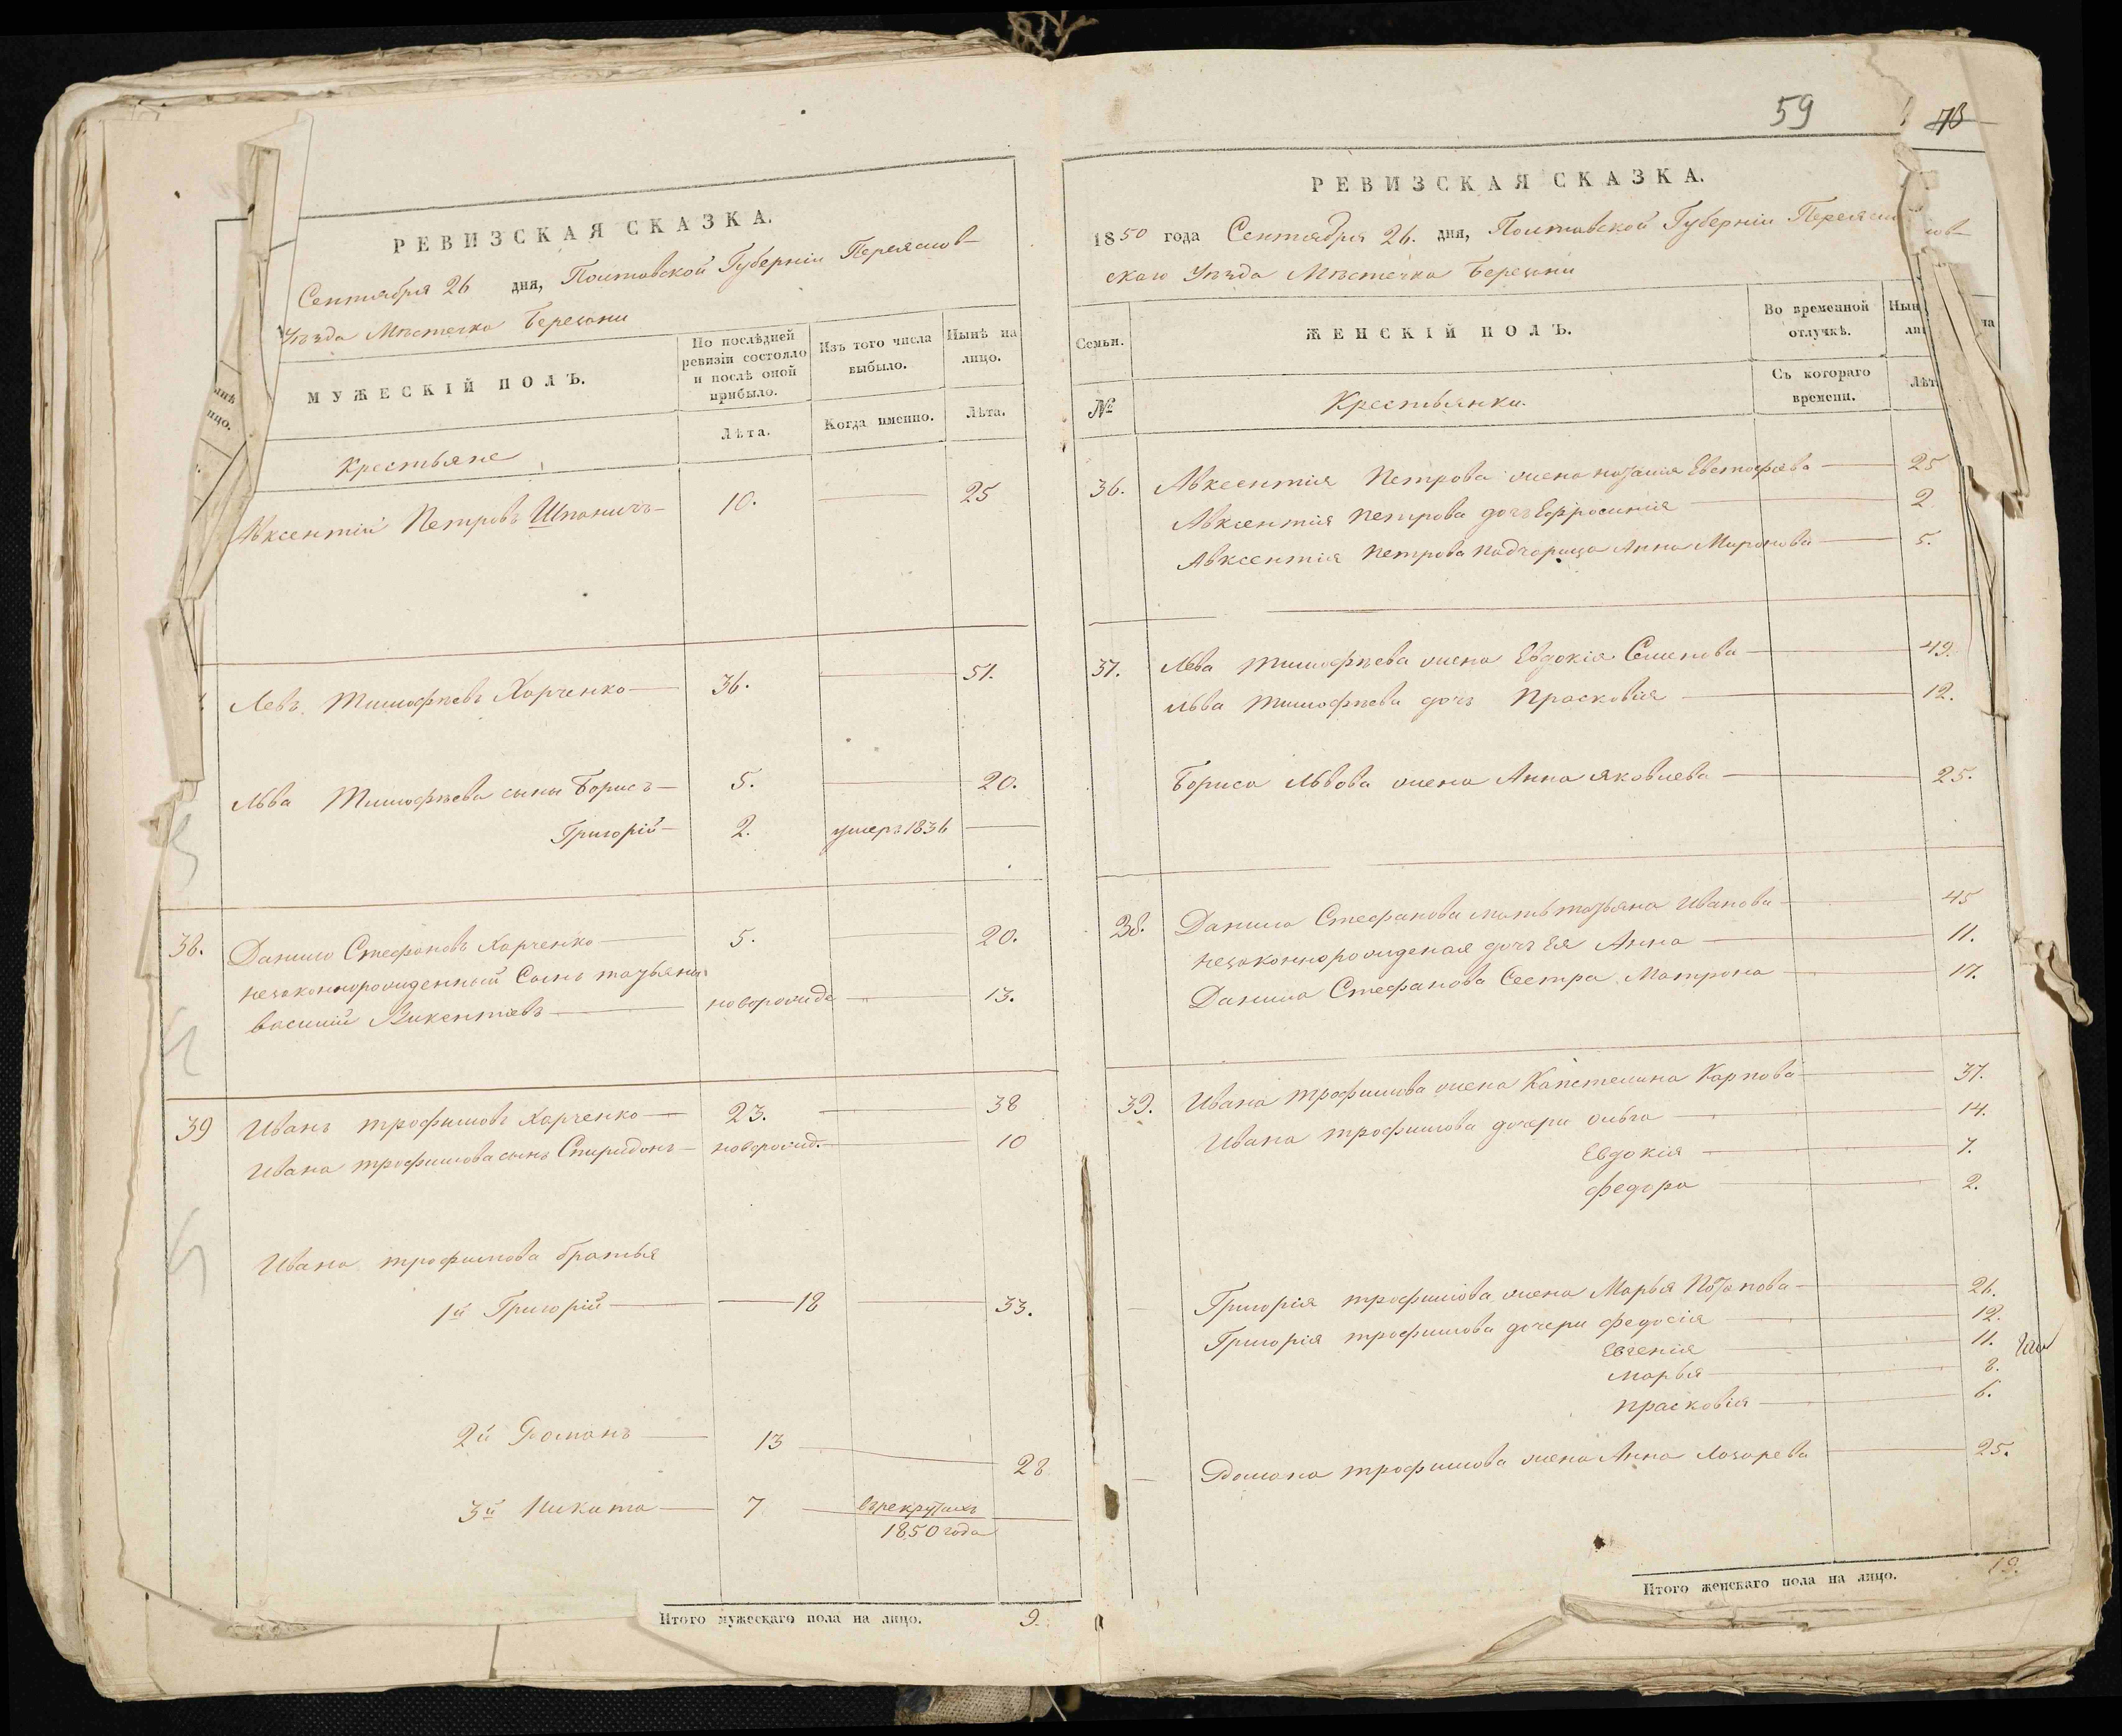 РЕВИЗСКАЯ СКАЗКА.
Сентября 26 дня, Полтавской Губерніи Переяслов-
Уѣзда Мѣстечка Березани
МУЖЕСКІЙ ПОЛЪ.
По послѣдней ревизіи состояло и послѣ оной прибыло.
Изъ того числа выбыло.
Нынѣ на лицо.
Лѣта.
Когда именно.
Лѣта.
Крестьяне
Авксентій Петровъ 10. 25
Левъ Тимофѣевъ Харченко 36. 51.
Льва Тимофѣева сыны Борисъ 5. 20.
Григорій 2. умеръ 1836
38. Данило Стефановъ Харченко 5. 20.
незаконнорожденный Сынъ татьяны
василій Викентіевъ новорожде 13.
39 Иванъ трофимовъ Харченко 23. 38
Ивана трофимова сынъ Спиридонъ новорожд. 10
Ивана трофимова братья
1й Григорій 18 33.
2й Романъ 13 28
3й Никита 7 въ рекрутахъ
1850 года
Итого мужескаго пола на лицо. 9.
59
РЕВИЗСКАЯ СКАЗКА.
1850 года Сентября 26. дня, Полтавской Губерніи Переяслов-
скаго Уѣзда Мѣстечка Березани
Семьи.
ЖЕНСКІЙ ПОЛЪ.
Во временной отлучкѣ.
№
Крестьянки.
Съ котораго времени.
Лѣт
36. Авксентія Петрова жена наталія Евстафіева 25
Авксентія Петрова дочь Ефросинія 2.
Авксентія Петрова Падчерица Анна Миронова 5.
37. Льва Тимофѣева жена Евдокія Семенова 49.
Льва Тимофѣева дочь Прасковія 12.
Бориса Львова жена Анна яковлева 25.
38. Данила Стефанова мать татьяна Иванова 45
незаконнорожденая дочь Ея Анна 11.
Данила Стефанова Сестра Матрона 17.
39. Ивана трофимова жена Капетелина Карпова 37.
Ивана трофимова дочери ольга 14.
Евдокія 7.
федора 2.
Григорія трофимова жена Марья Потапова 26.
Григорія трофимова дочери федосія 12.
Евгенія 11.
марья 8.
прасковія 6.
Романа трофимова жена Анна Лазарева 25.
Итого женскаго пола на лицо. 19.